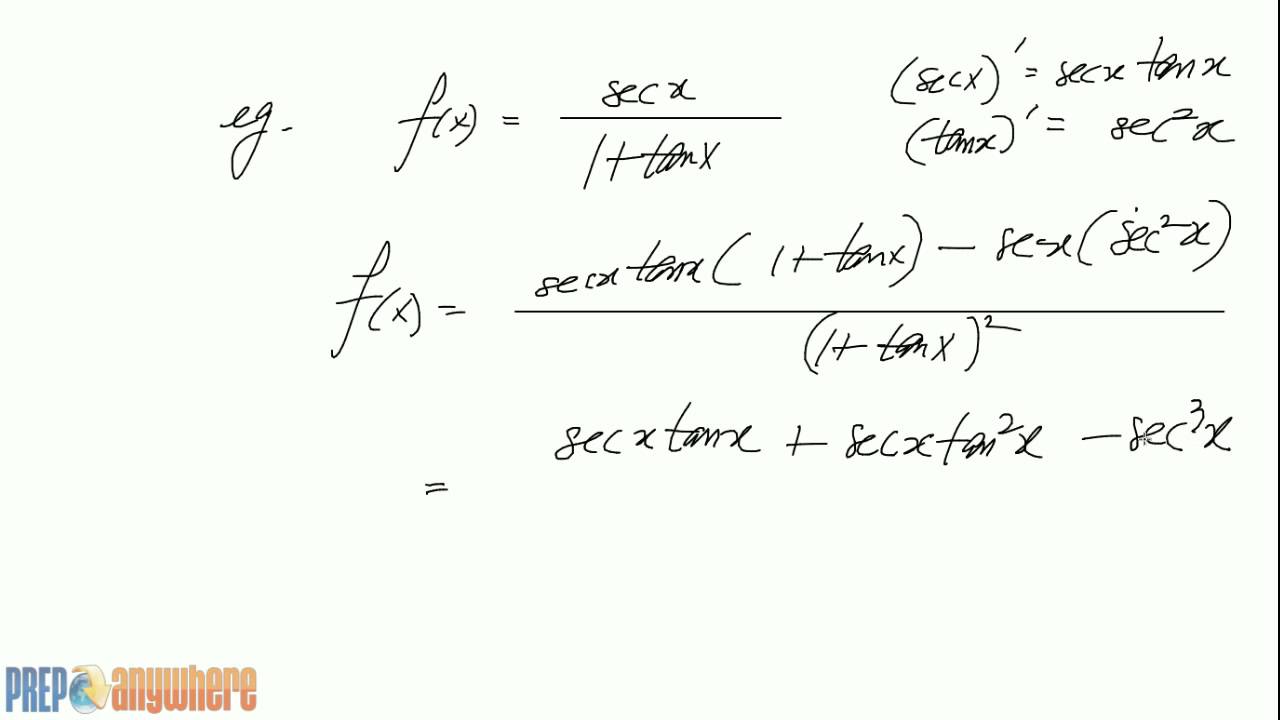 eg. f(x) = secx / 1+tanx
(secx)' = secx tanx
(tanx)' = sec²x
f(x) = secxtanx(1+tanx) - secx(sec²x) / (1+tanx)²
= secxtanx + secxtan²x - sec³x
PREP anywhere